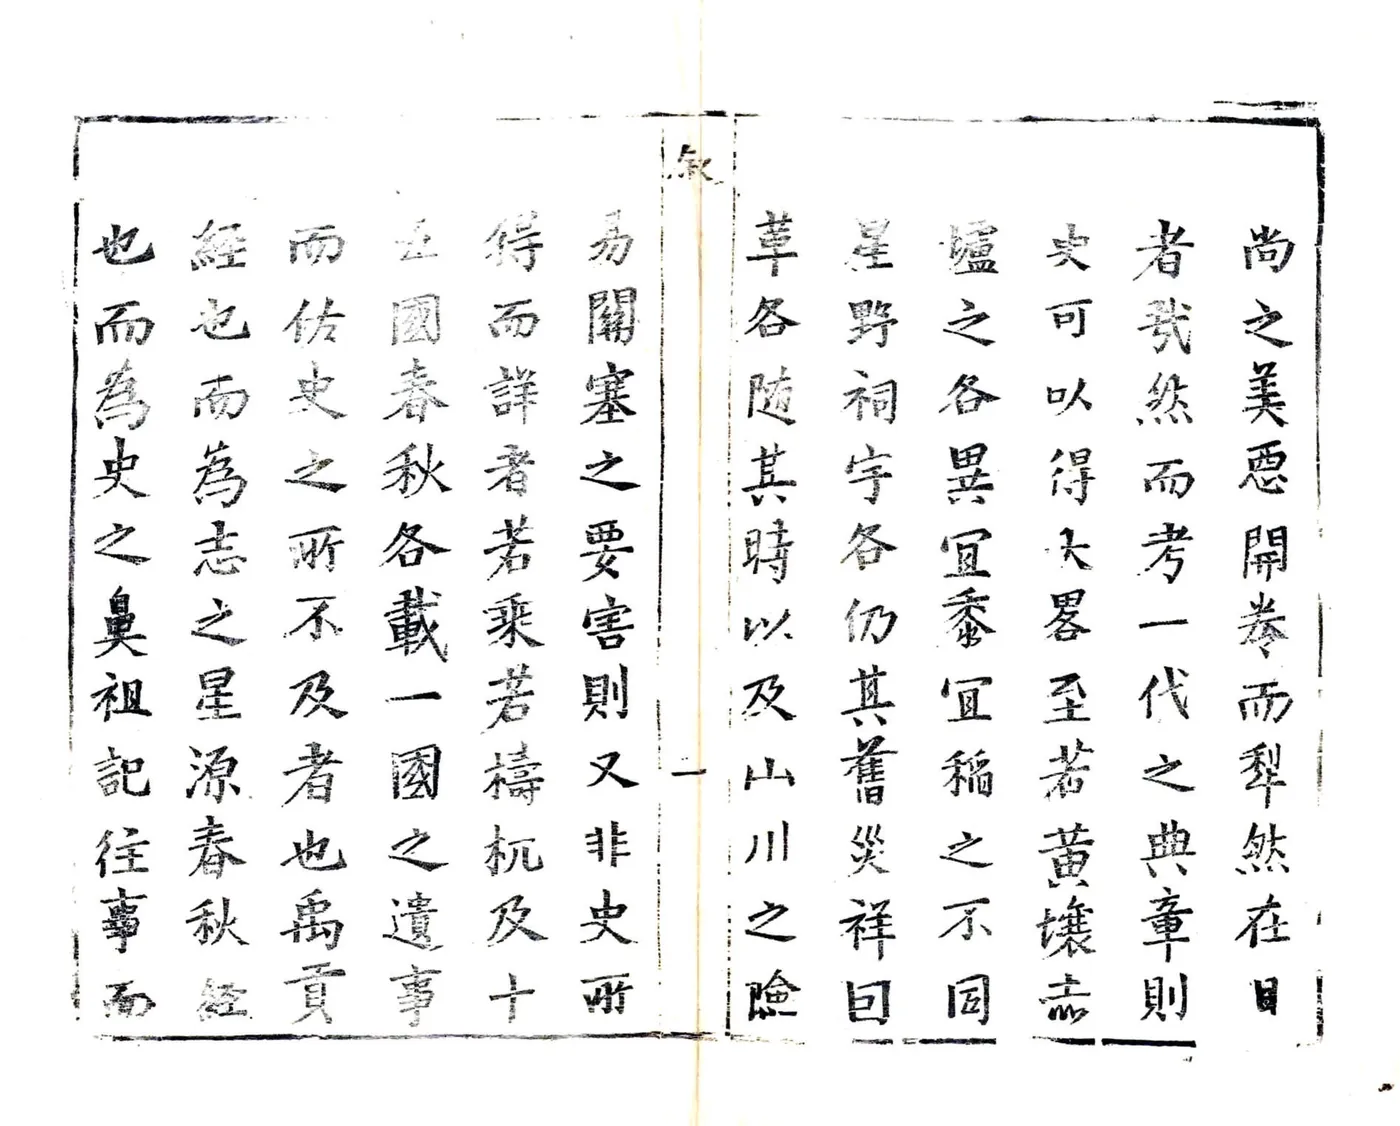 尚之美惡開卷而犁然在目
者哉然而考一代之典章則
史可以得大畧至若黃壤赤
壚之各異冝黍冝稻之不同
星野祠宇各仍其舊災祥回
革各随其時以及山川之險
敘
一
易關塞之要害則又非史所
得而詳者若乘若檮杌及十
五國春秋各載一國之遺事
而佑史之所不及者也禹貢
經也而為志之星源春秋經
也而為史之鼻祖記徃事而